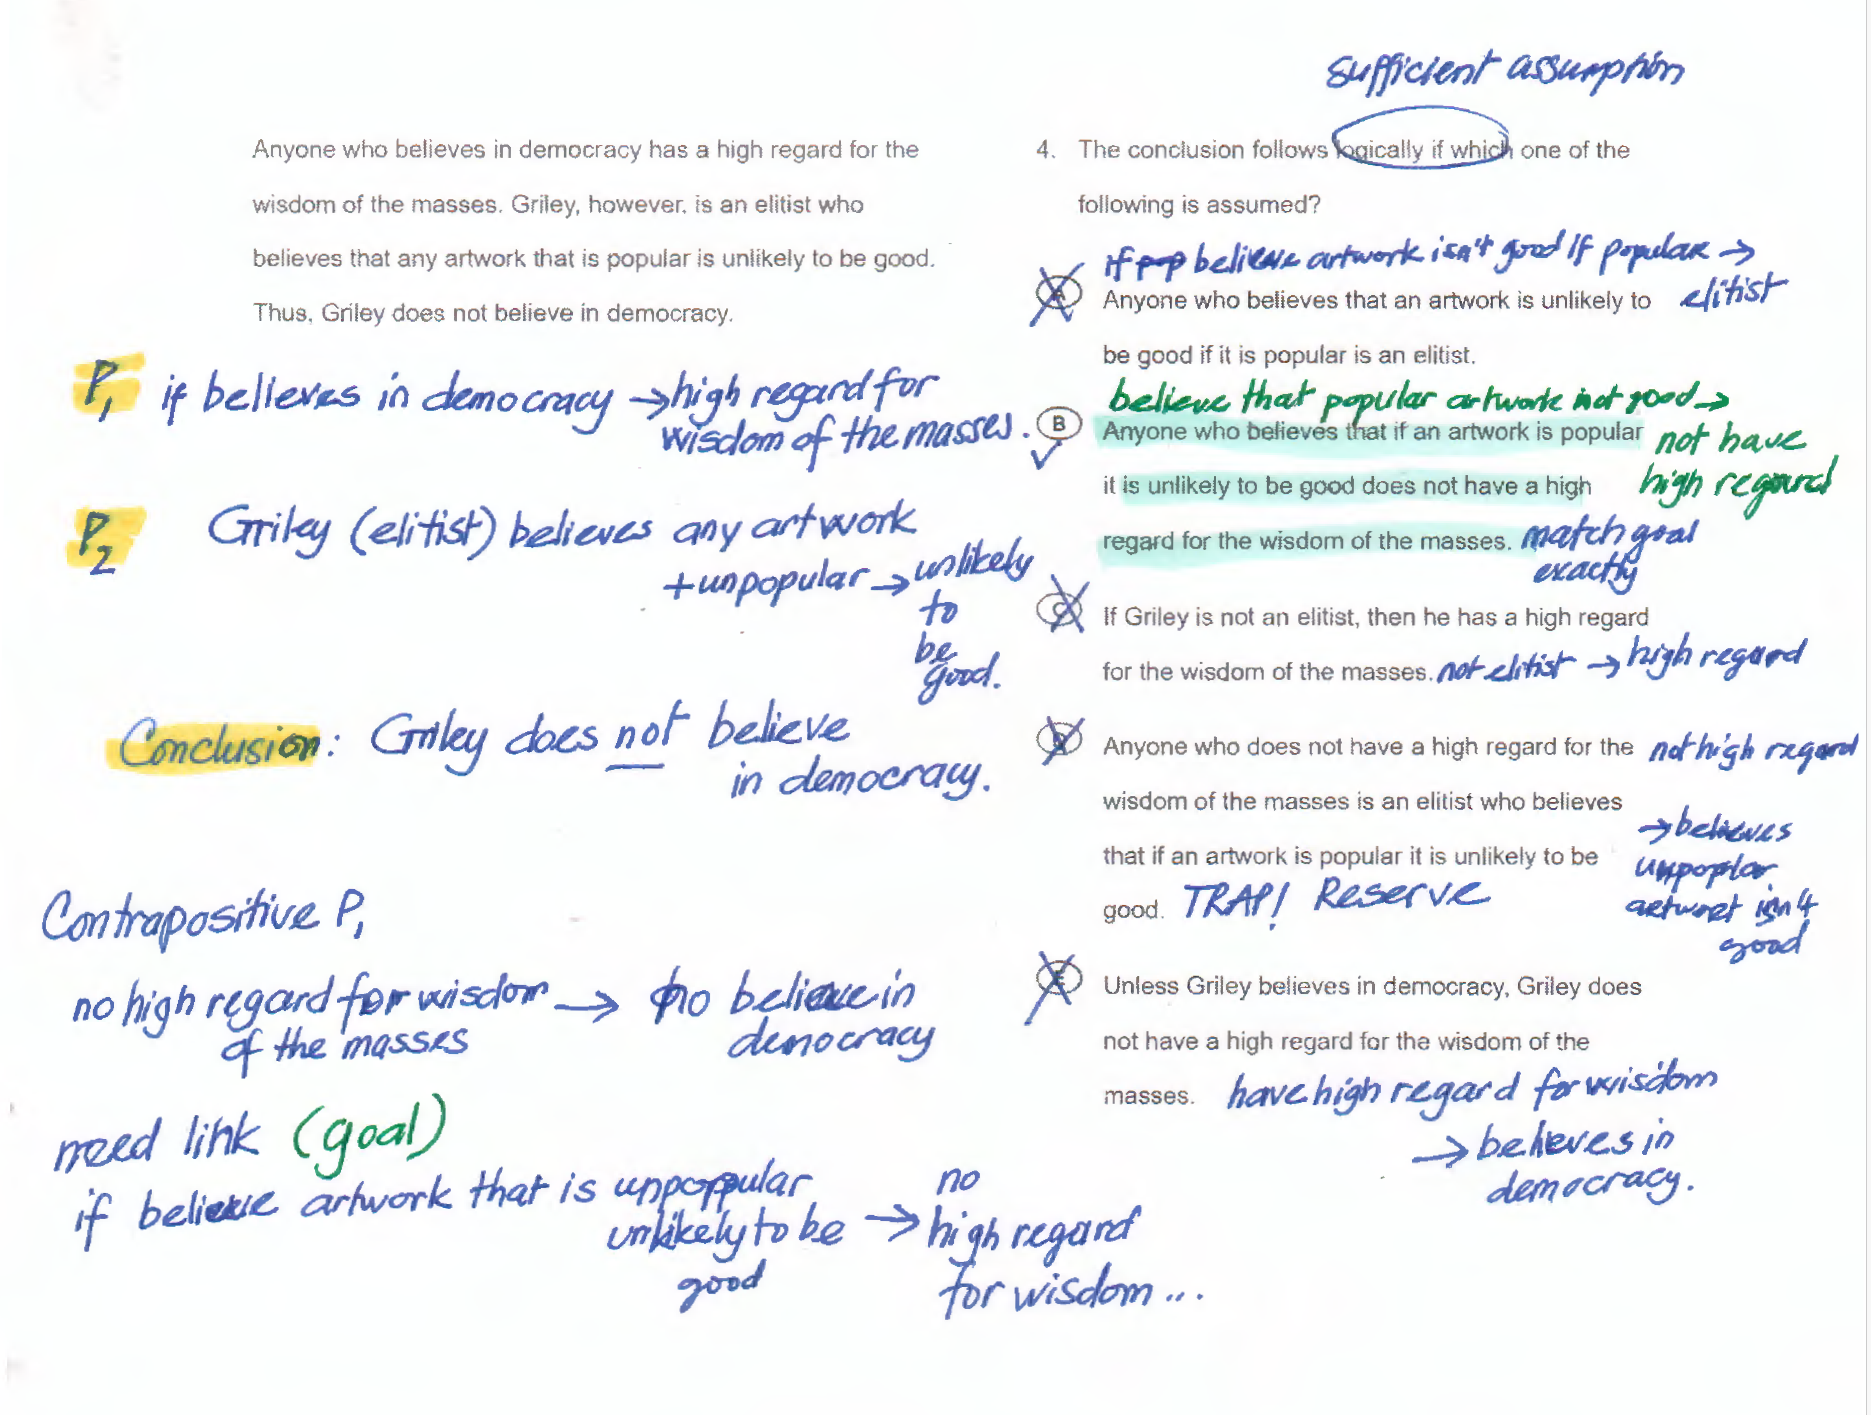 sufficient assumption
Anyone who believes in democracy has a high regard for the
wisdom of the masses. Griley, however, is an elitist who
believes that any artwork that is popular is unlikely to be good.
Thus, Griley does not believe in democracy.
P1 if believes in democracy → high regard for
wisdom of the masses.
P2 Griley (elitist) believes any artwork
+ unpopular → unlikely
to
be
good.
Conclusion: Griley does not believe
in democracy.
Contrapositive P1
no high regard for wisdom → no believe in
of the masses democracy
need link (goal)
if believe artwork that is unpopular
unlikely to be →
good
no
high regard
for wisdom ...
4. The conclusion follows logically if which one of the
following is assumed?
if believe artwork isn't good if popular →
elitist
A Anyone who believes that an artwork is unlikely to
be good if it is popular is an elitist.
believe that popular artwork not good →
not have
high regard
B Anyone who believes that if an artwork is popular
it is unlikely to be good does not have a high
regard for the wisdom of the masses. match goal
exactly
C If Griley is not an elitist, then he has a high regard
for the wisdom of the masses. not elitist → high regard
D Anyone who does not have a high regard for the not high regard
wisdom of the masses is an elitist who believes
→ believes
that if an artwork is popular it is unlikely to be
good. TRAP! Reserve
isn't
good
E Unless Griley believes in democracy, Griley does
not have a high regard for the wisdom of the
masses. have high regard for wisdom
→ believes in
democracy.